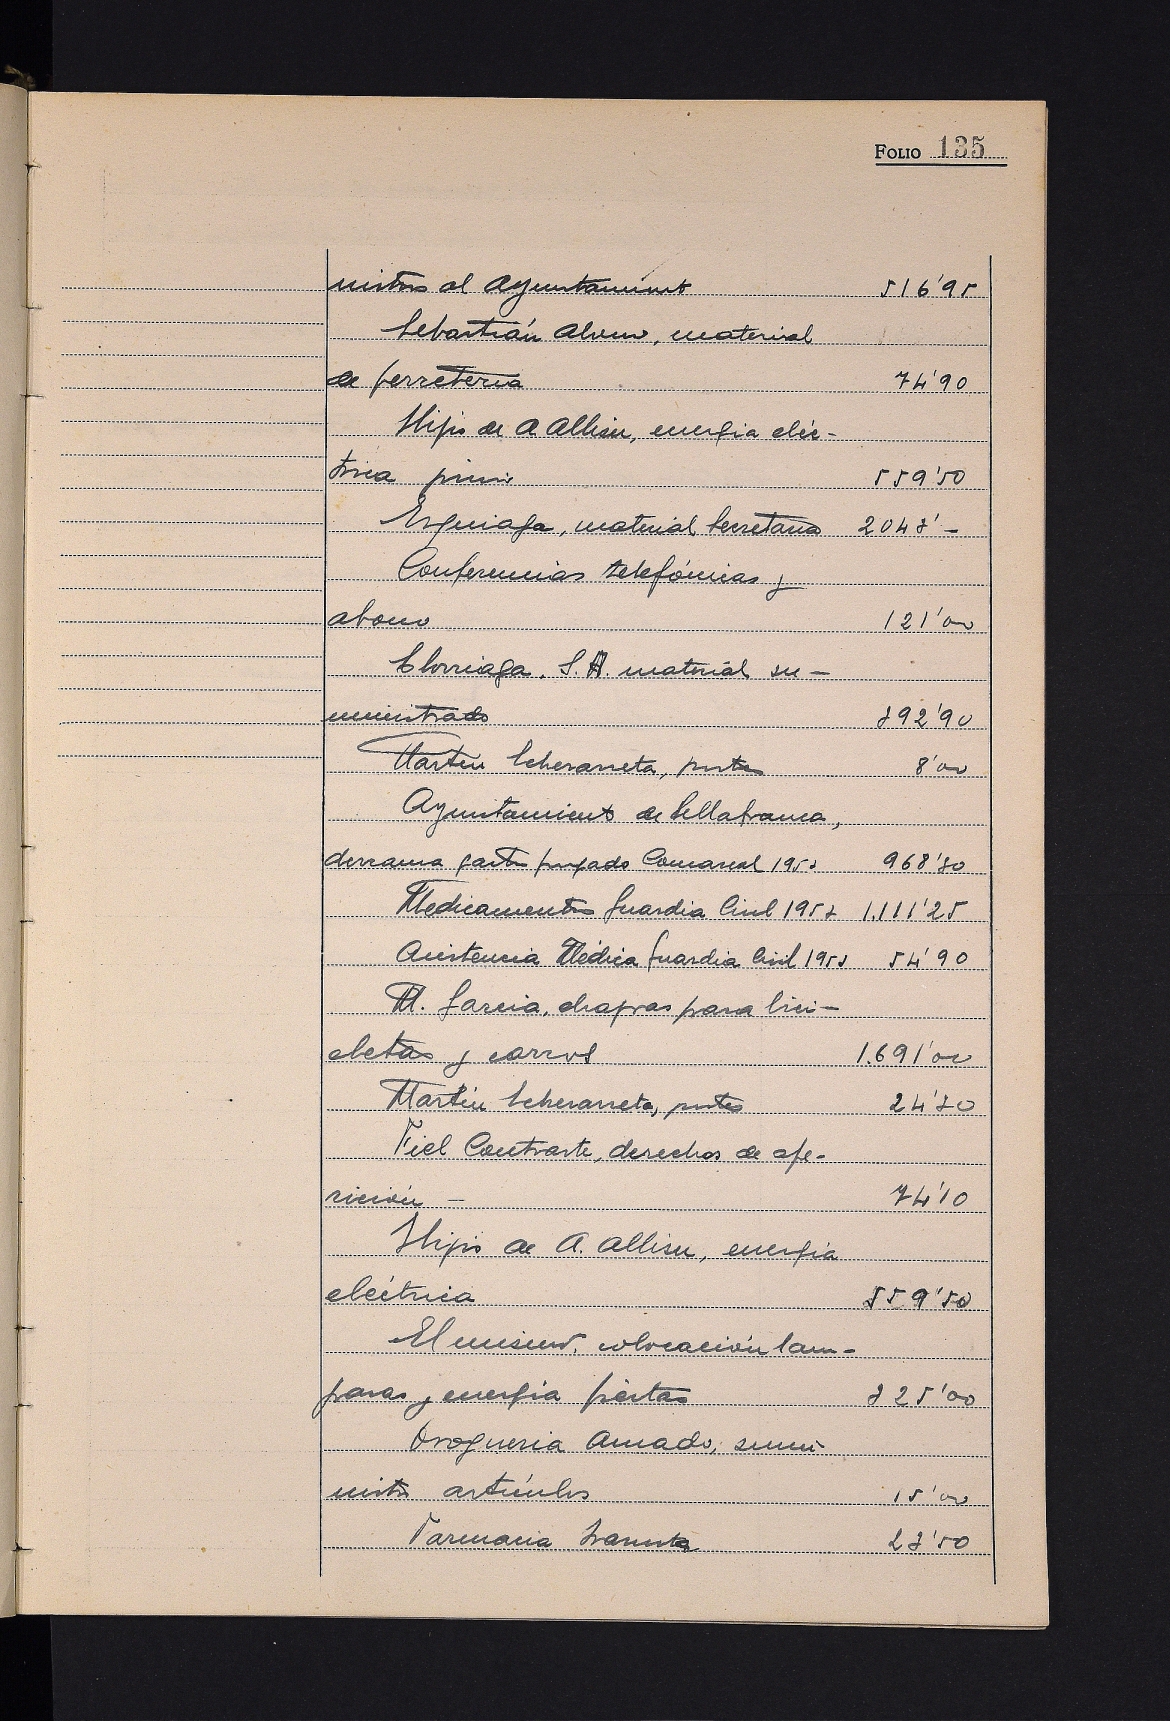 FOLIO 135
nistros al Ayuntamiento 516'95
Sebastián Alvaro, material
de ferreteria 74'90
Hijos de A Allisu, energia eléc-
trica junio 559'50
Esquiaga, material Secretaria 2043'-
Conferencias telefónicas y
abono 121'00
Elorriaga. S.A. material su-
ministrado 392'90
Martin Echezarreta, portes 8'00
Ayuntamiento de Villafranca,
derrama gastos juzgado Comarcal 1953 968'30
Medicamentos Guardia Civil 1953 1.111'25
Asistencia Médica Guardia Civil 1953 54'90
M. Garcia, chapas para bici-
cletas y carros 1.691'00
Martin Echezarreta, portes 24'30
Fiel Contraste, derechos de afe-
rición - 74'10
Hijos de A. Allisu, energia
eléctrica 559'50
El mismo, colocación lam-
paras y energia fiestas 325'00
Drogueria Amado, sumi-
nistro artículos 15'00
Farmacia 23'50